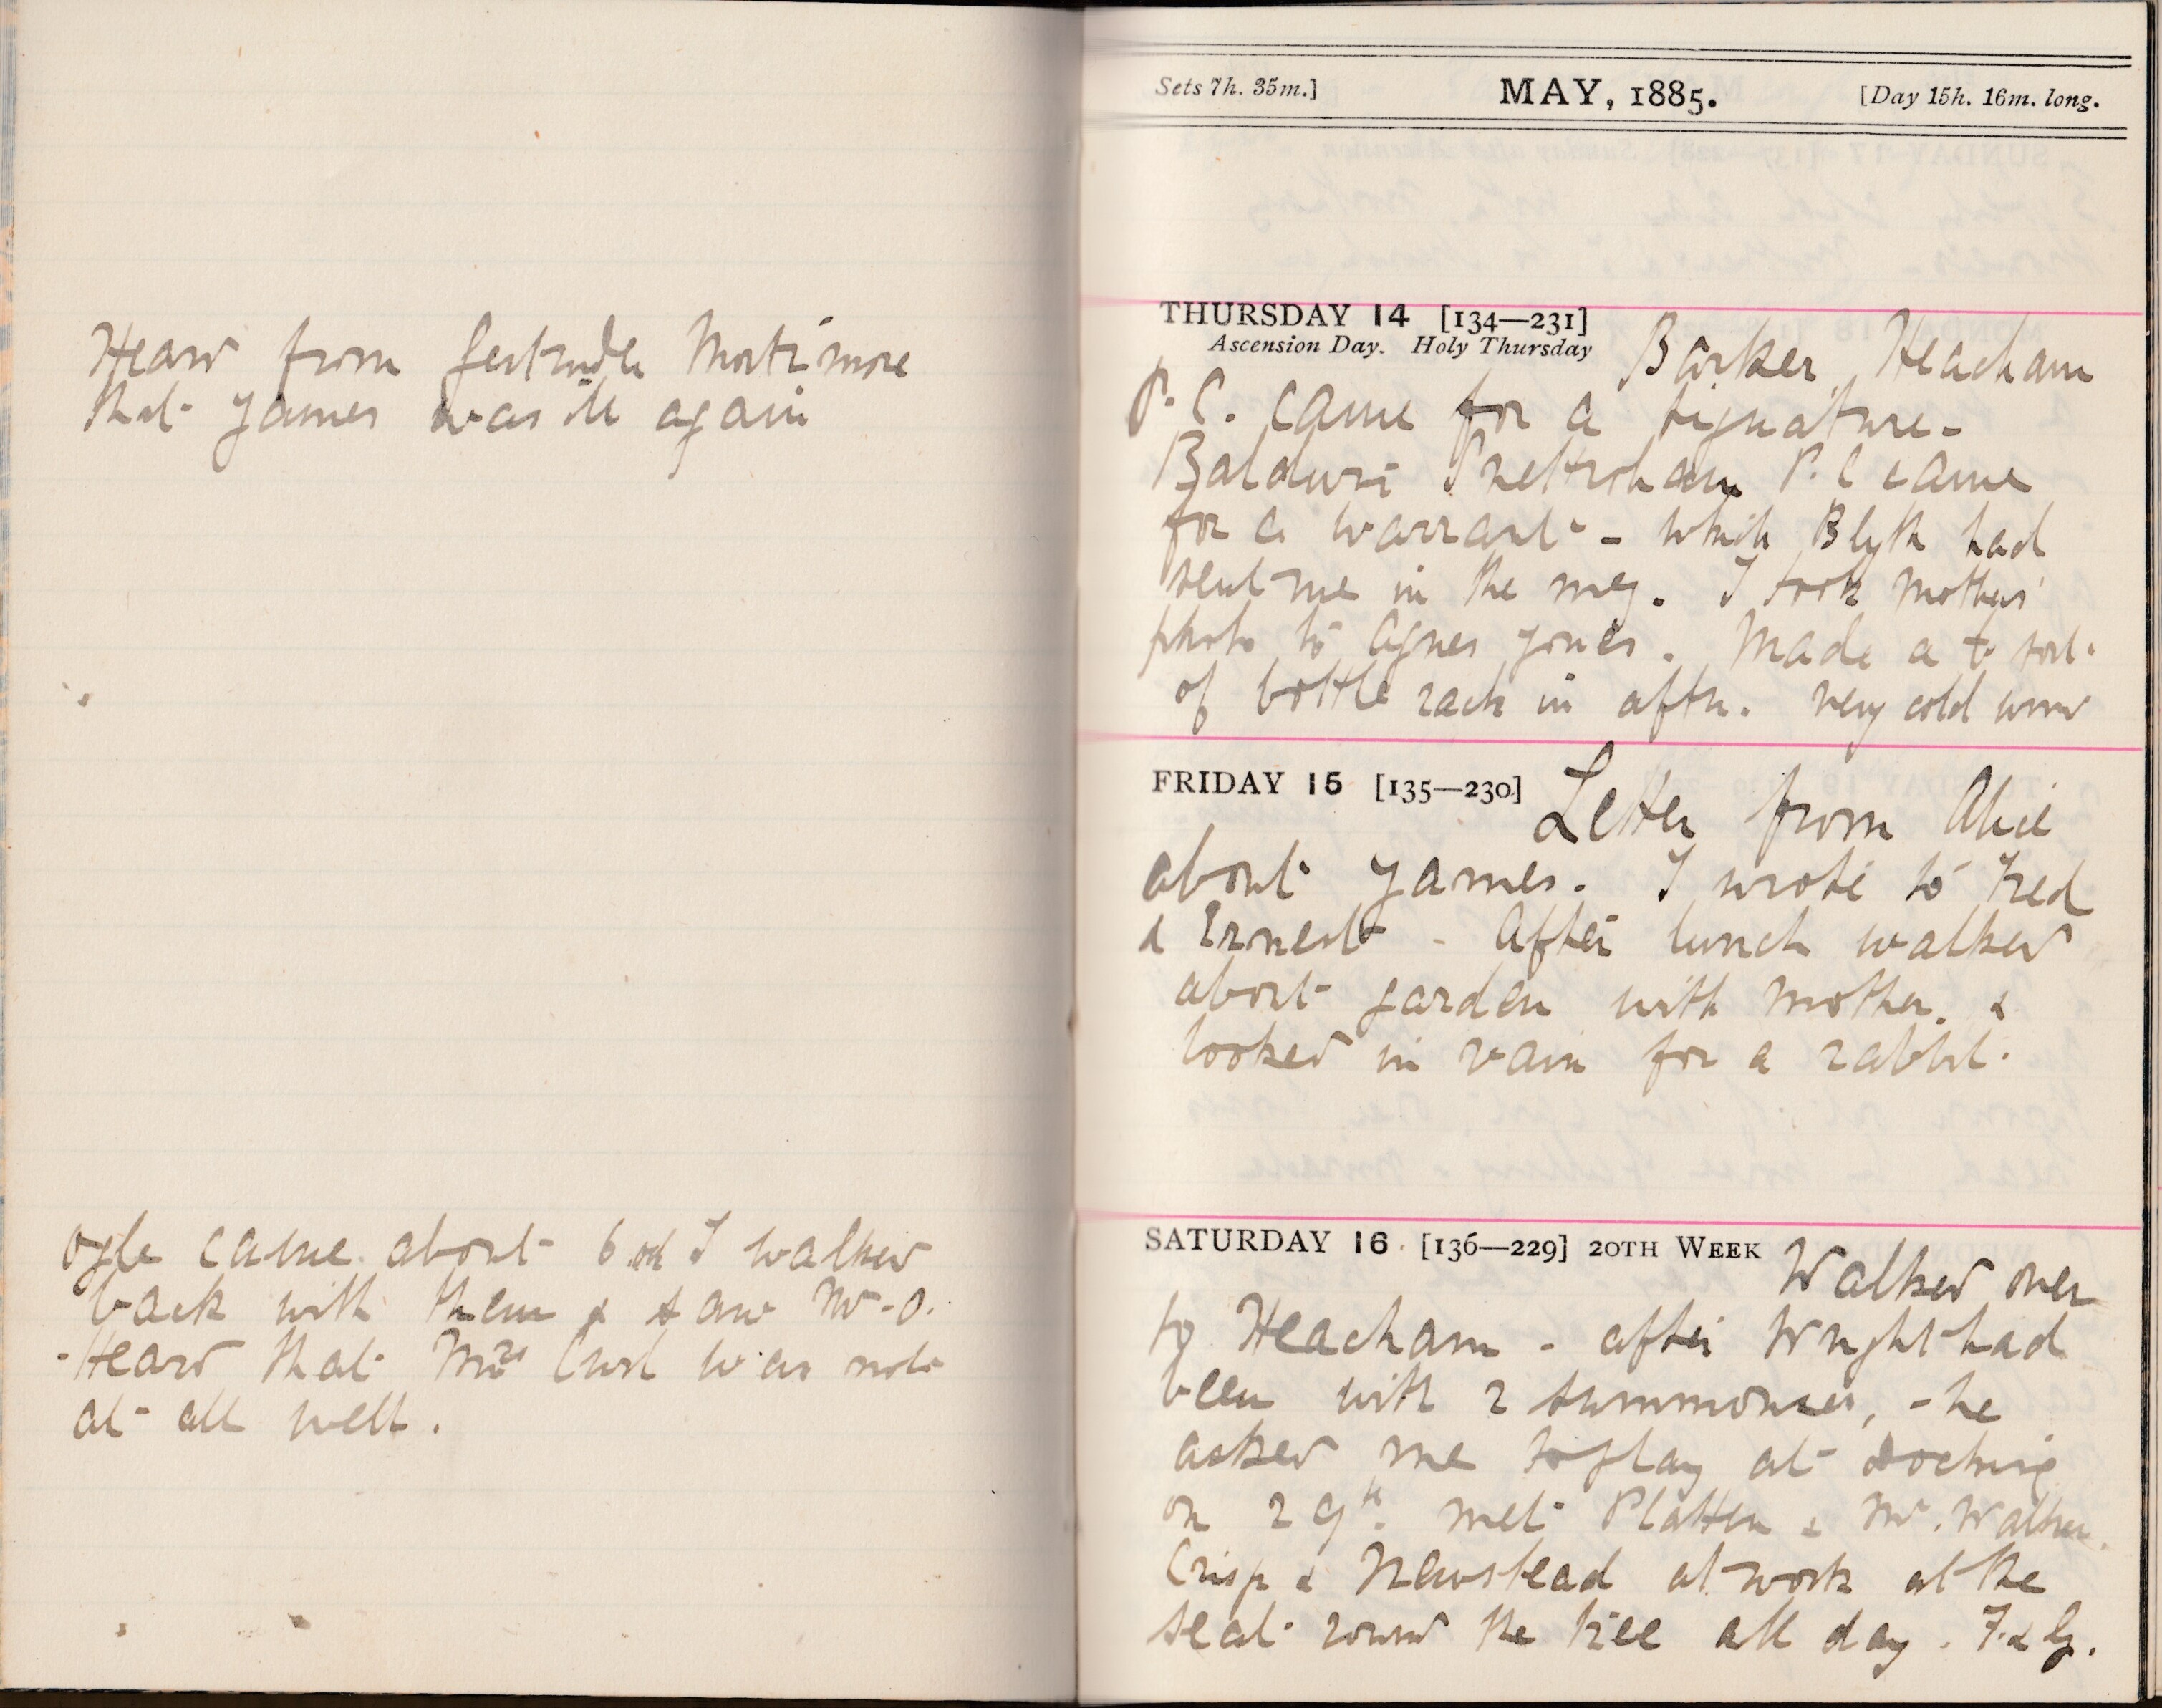 Heard from Gertrude Mortimore
that James was ill again
Ogle came about 6 & I walked
back with them & saw Mr. O.
Heard that Mrs Curl was not
at all well.
Sets 7h. 35m.]
MAY, 1885.
[Day 15h. 16m. long.
THURSDAY 14 [134—231]
Ascension Day. Holy Thursday
Barker, Heacham
P.C. came for a signature-
Baldwin Snettisham P.C came
for a warrant - which Blyth had
sent me in the mg. I took Mothers'
photo to Agnes Jones. Made a sort
of bottle rack in aftn. very cold wind
FRIDAY 15 [135—230]
Letter from Alice
about James. I wrote to Fred
& Ernest - After lunch walked
about garden with Mother &
looked in vain for a rabbit.
SATURDAY 16 [136—229] 20TH WEEK
Walked over
to Heacham - after Wright had
been with 2 summonses, - he
asked me to play at Docking
on 29th. met Platten & Mr. Walker.
Crisp & Newstead at work at the
seat round the tree all day. F. & G.